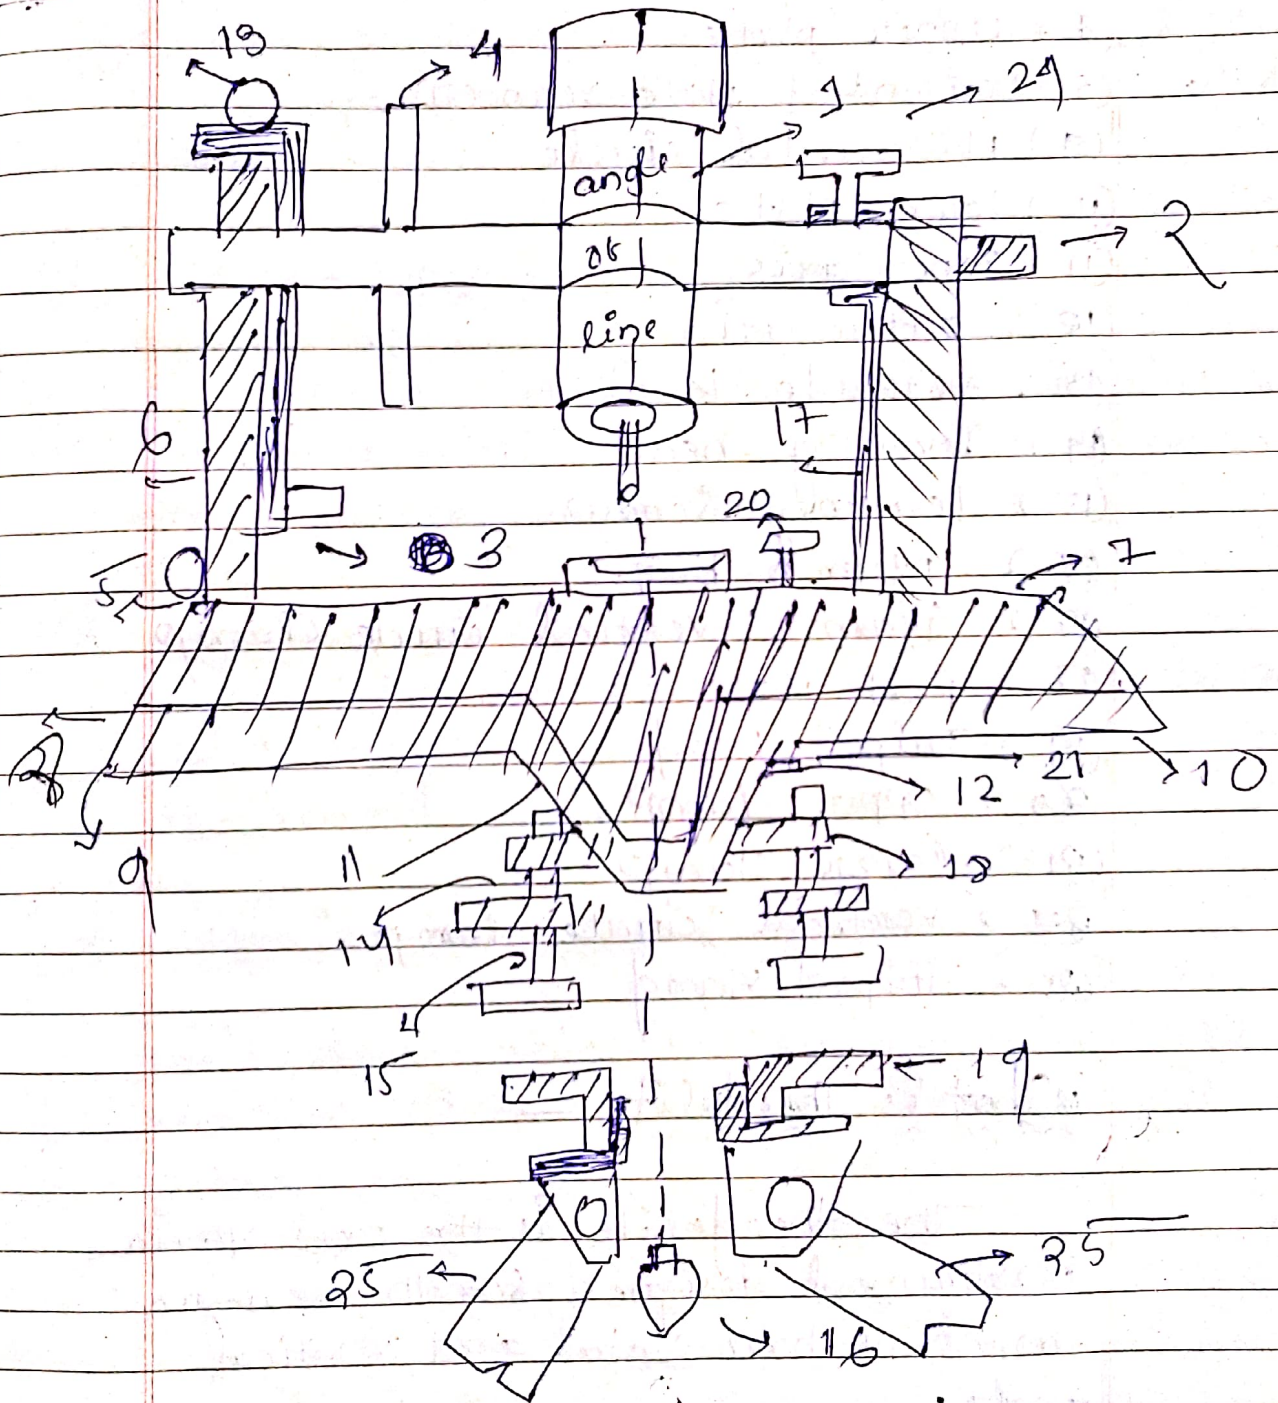 13
4
1
24
angle
or
line
2
6
17
20
3
5
7
8
21
12
10
9
11
18
14
15
19
25
25
16